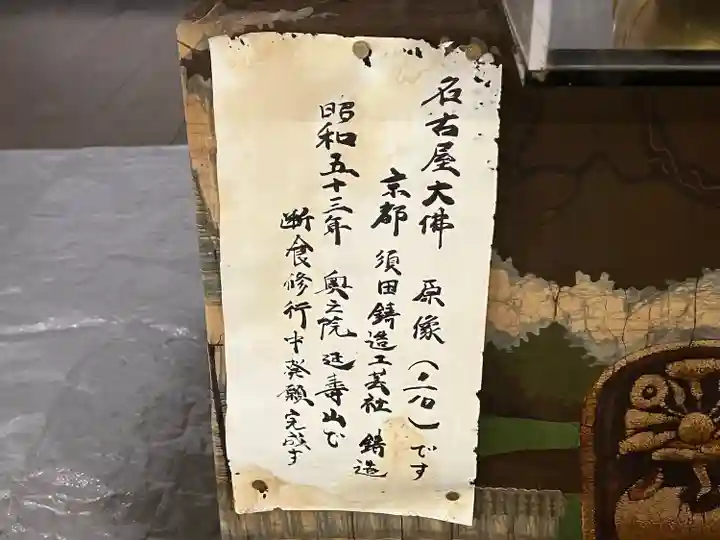 名古屋大佛 原像（ ）です
京都 須田鋳造工芸社 鋳造
昭和五十三年 奥之院 延寿山で
断食修行中発願完成す